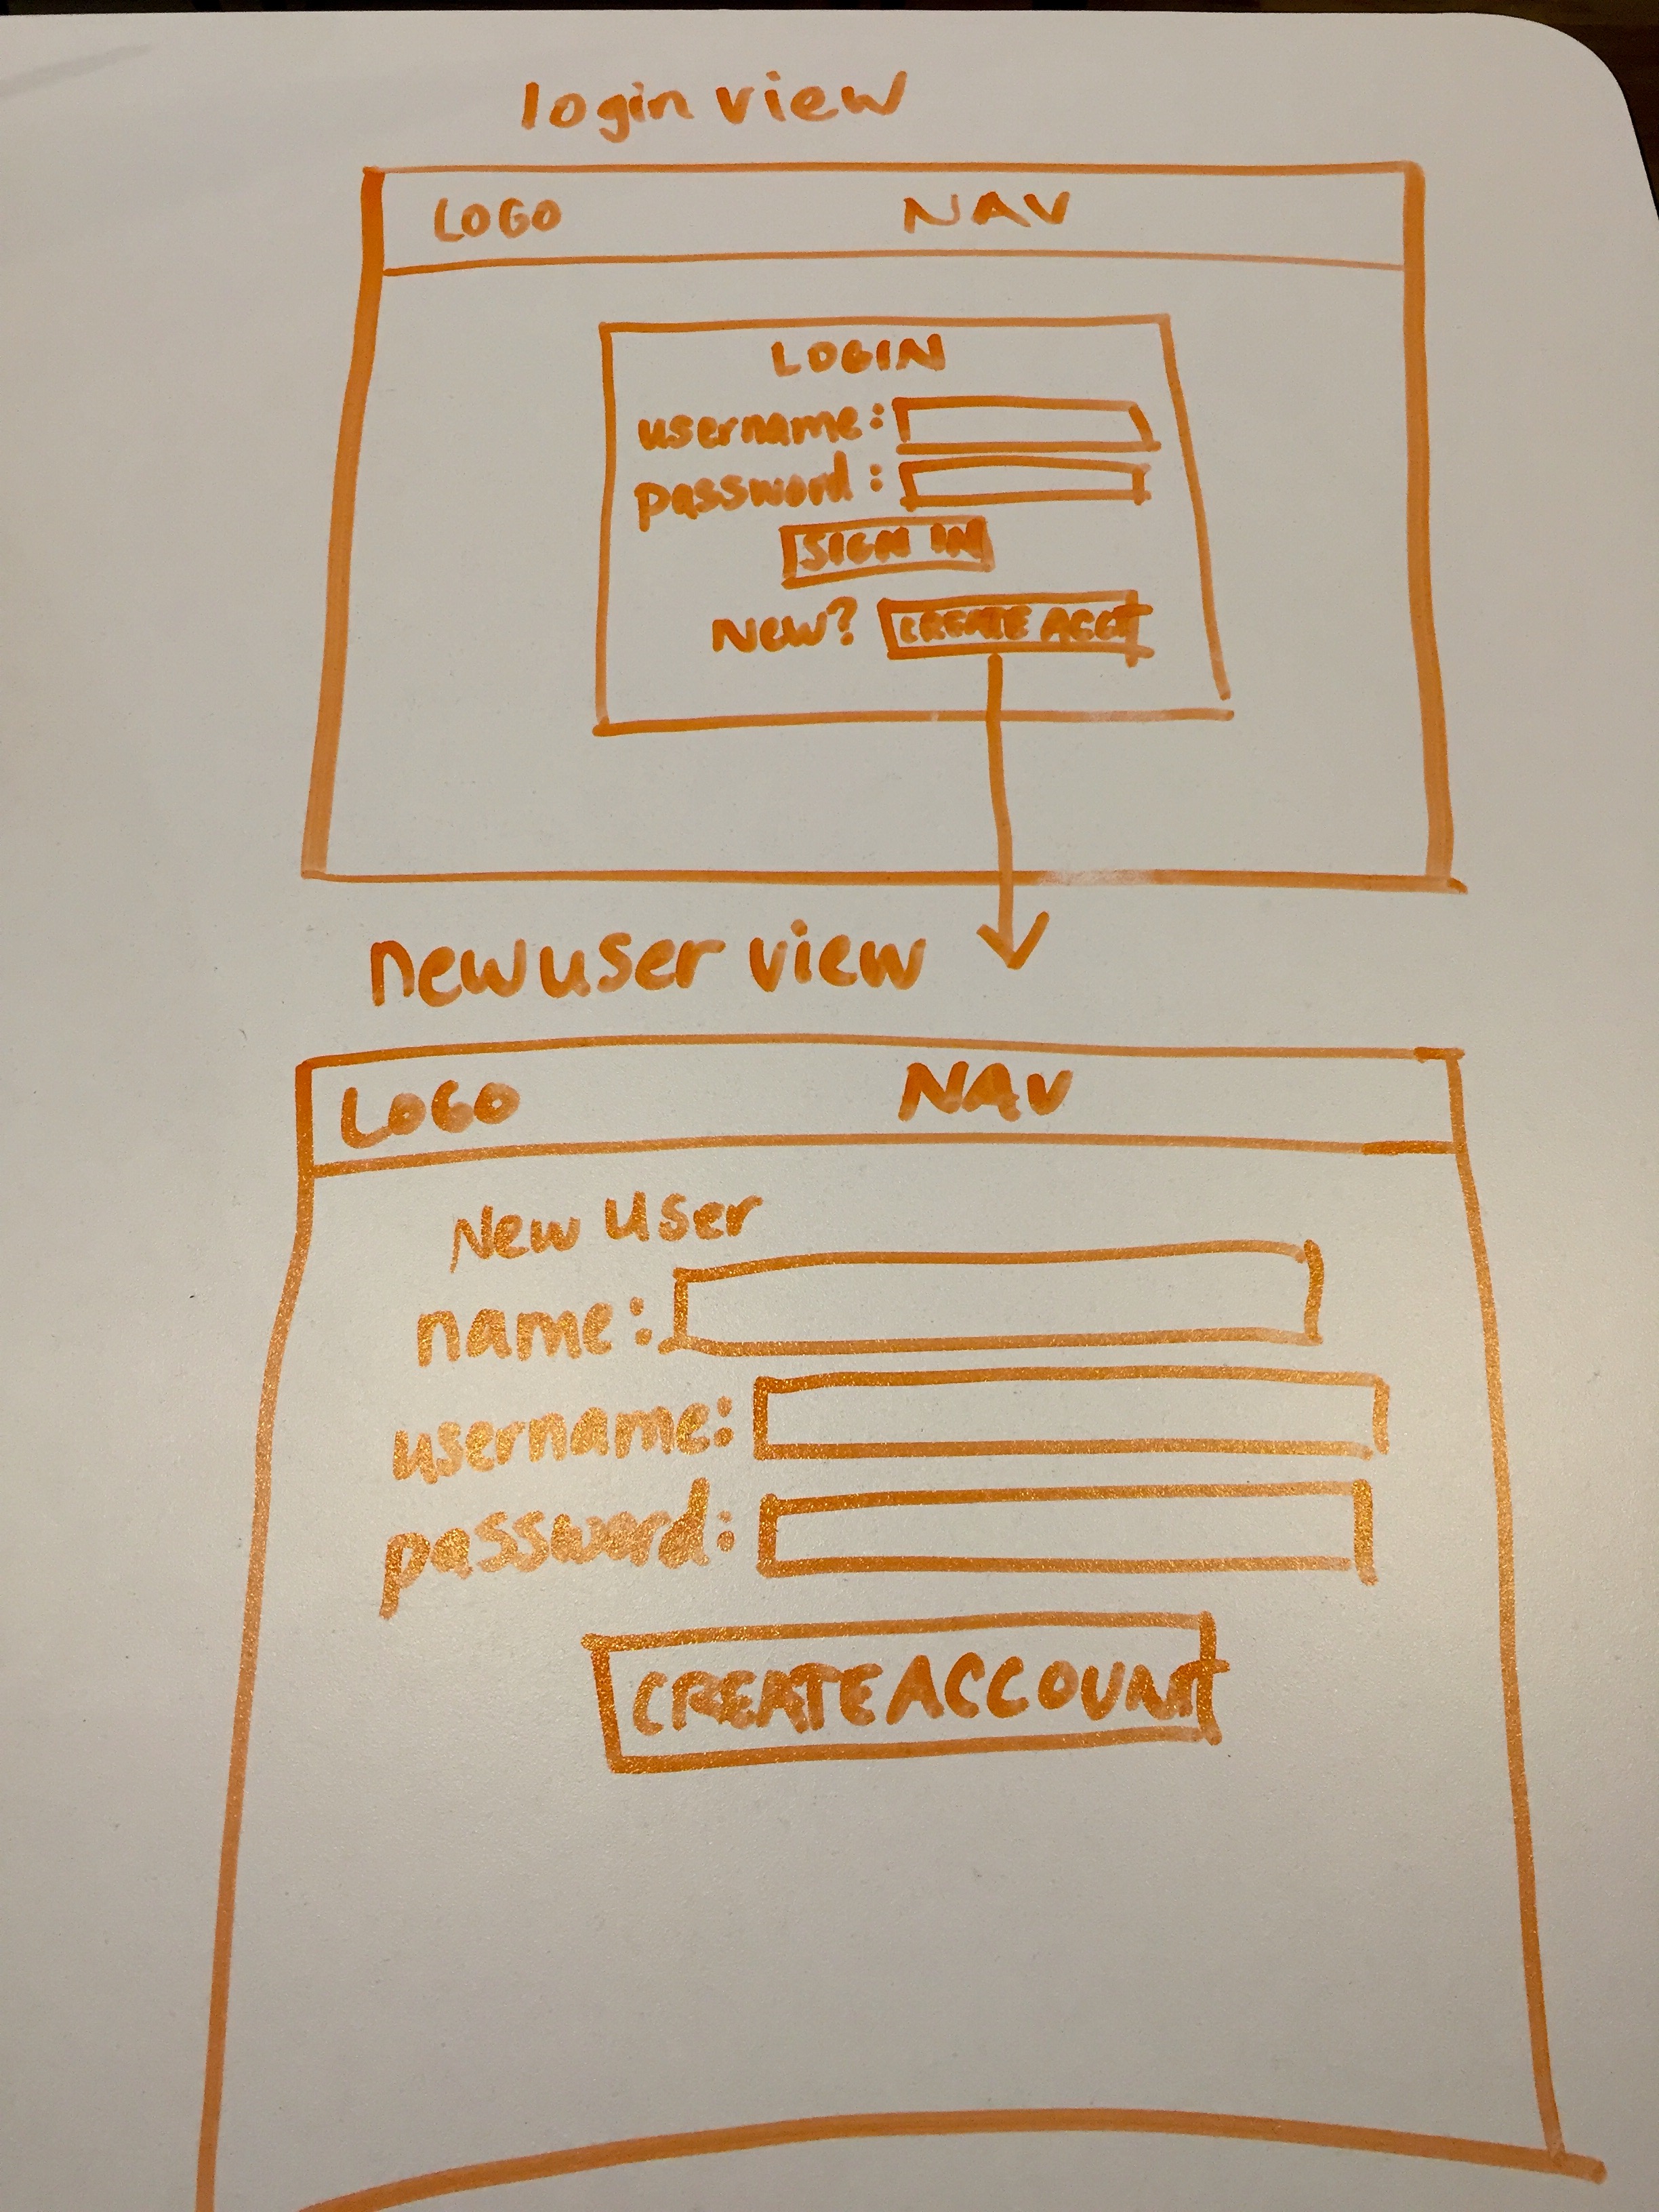 login view
LOGO NAV
LOGIN
username:
password:
SIGN IN
New? CREATE ACCT
new user view
LOGO NAV
New User
name:
username:
password:
CREATE ACCOUNT